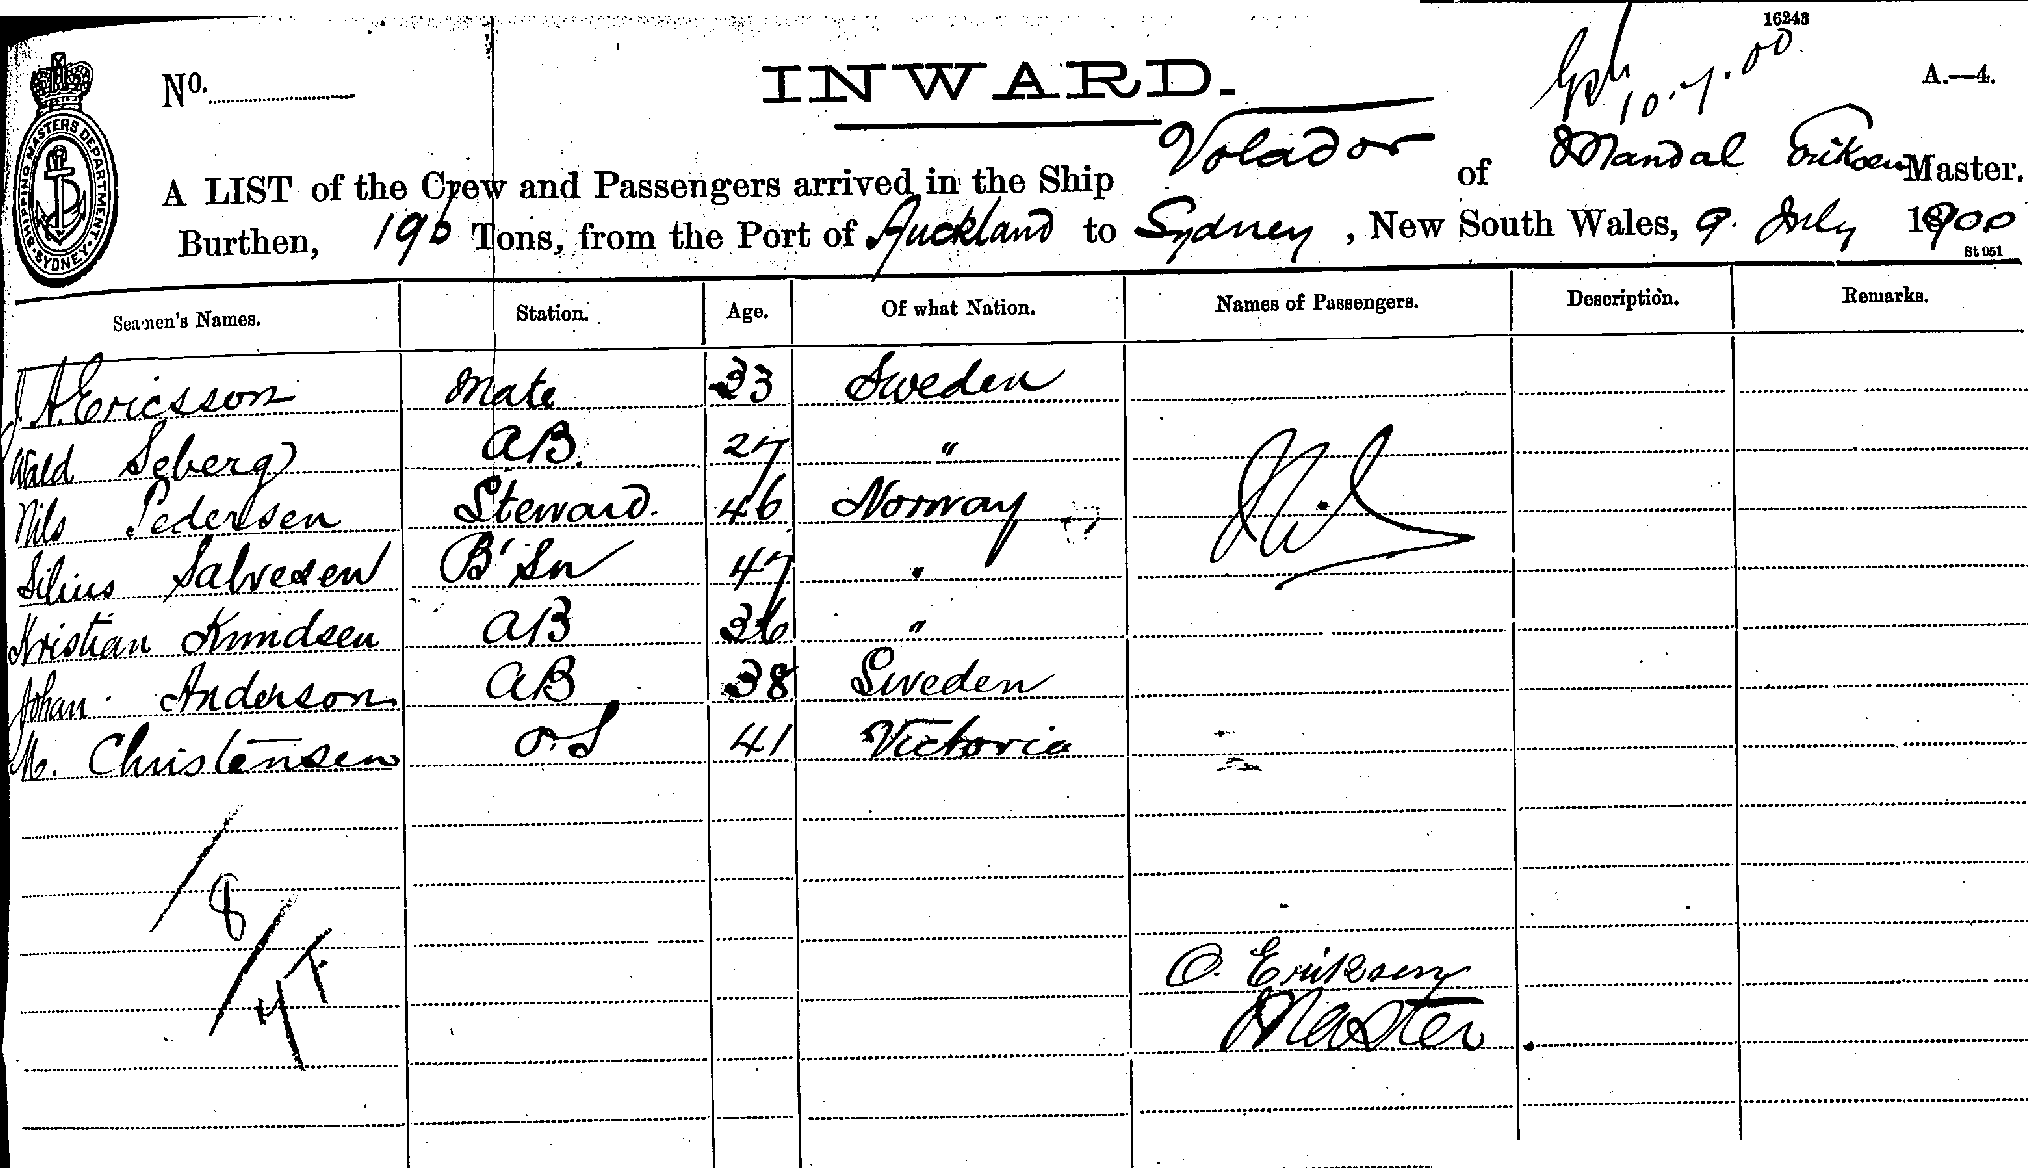 16243
10.7.00
A.—4.
No.
INWARD.
SHIPPING MASTERS DEPARTMENT SYDNEY
A LIST of the Crew and Passengers arrived in the Ship Volador of Mandal Eriksen Master.
Burthen, 196 Tons, from the Port of Auckland to Sydney, New South Wales, 9. July 1900
St 051
Seamen's Names. Station. Age. Of what Nation. Names of Passengers. Description. Remarks.
J. A. Ericsson Mate 33 Sweden
Wald Seberg AB. 27 "
Nils Pedersen Steward. 46 Norway
Silius Salvesen B'Sn 47 "
Kristian Knudsen AB 36 "
Johan Anderson AB 38 Sweden
M. Christensen O.S 41 Victoria
Nil
8
O. Eriksen
Master